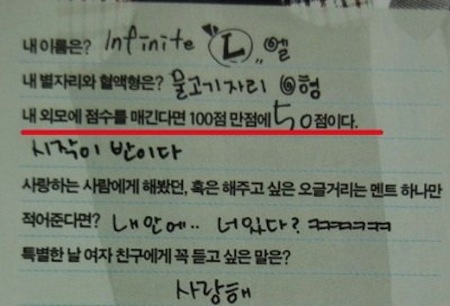 내 이름은? Infinite "L" 엘
내 별자리와 혈액형은? 물고기자리 O형
내 외모에 점수를 매긴다면 100점 만점에 50점이다.
시작이 반이다
사랑하는 사람에게 해봤던, 혹은 해주고 싶은 오글거리는 멘트 하나만
적어준다면? 내 안에.. 너있다? ㅋㅋㅋㅋㅋ
특별한 날 여자 친구에게 꼭 듣고 싶은 말은?
사랑해